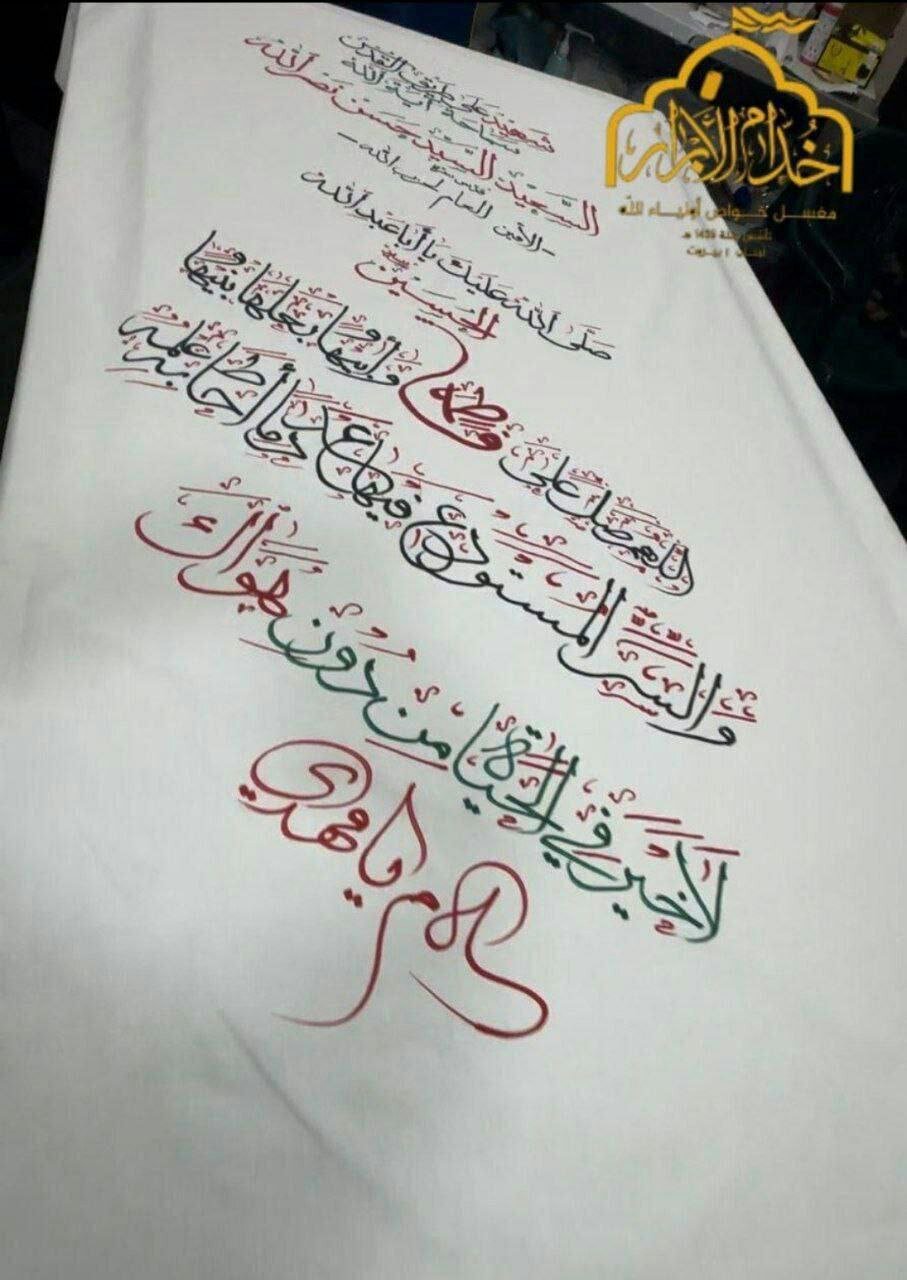 شهيد على طريق القدس
سماحة آية الله
السعيد السيد حسن نصر الله
قدس سره
-الأمين العام لحزب الله-
صلى الله عليك يا أبا عبد الله
الحسين
اللهم صل على فاطمة وأبيها وبعلها وبنيها
والسر المستودع فيها عدد ما أحاط به علمك
لا خير في الحياة من دون هواك
يا مهدي
خدام الأبرار
مغسل خواص أولياء الله
تأسس سنة 1439 هـ
لبنان | بيروت